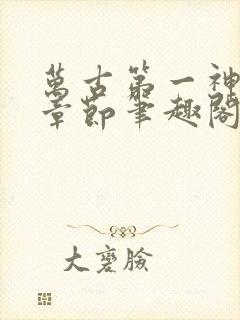 萬古第一神
章節筆趣閣
大褒臉